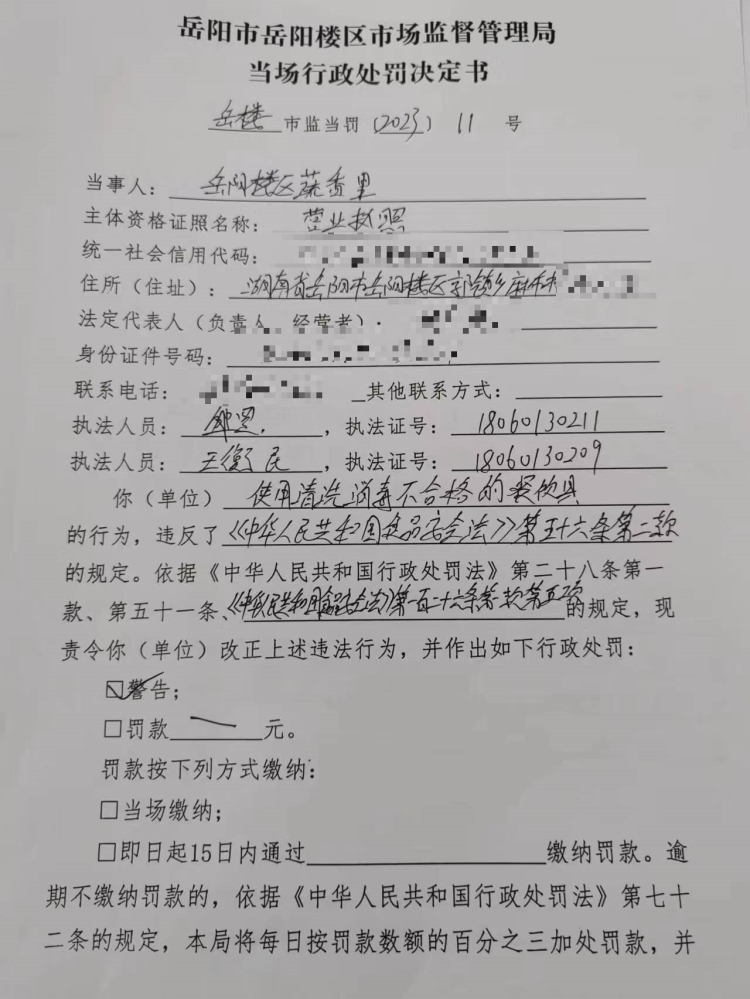 岳阳市岳阳楼区市场监督管理局
当场行政处罚决定书
岳楼 市监当罚 (2023) 11 号
当事人: 岳阳楼区蔬香里
主体资格证照名称: 营业执照
统一社会信用代码:
住所(住址): 湖南省岳阳市岳阳楼区郭镇乡麻布村
法定代表人(负责人、经营者):
身份证件号码:
联系电话: 其他联系方式:
执法人员: ,执法证号: 18060130211
执法人员: 王衡民 ,执法证号: 18060130209
你(单位) 使用清洗消毒不合格的餐饮具
的行为,违反了《中华人民共和国食品安全法》第五十六条第二款
的规定。依据《中华人民共和国行政处罚法》第二十八条第一
款、第五十一条、《中华人民共和国食品安全法》第一百二十六条第一款第五项的规定,现
责令你(单位)改正上述违法行为,并作出如下行政处罚:
☑警告;
□罚款 元。
罚款按下列方式缴纳:
□当场缴纳;
□即日起15日内通过 缴纳罚款。逾
期不缴纳罚款的,依据《中华人民共和国行政处罚法》第七十
二条的规定,本局将每日按罚款数额的百分之三加处罚款,并